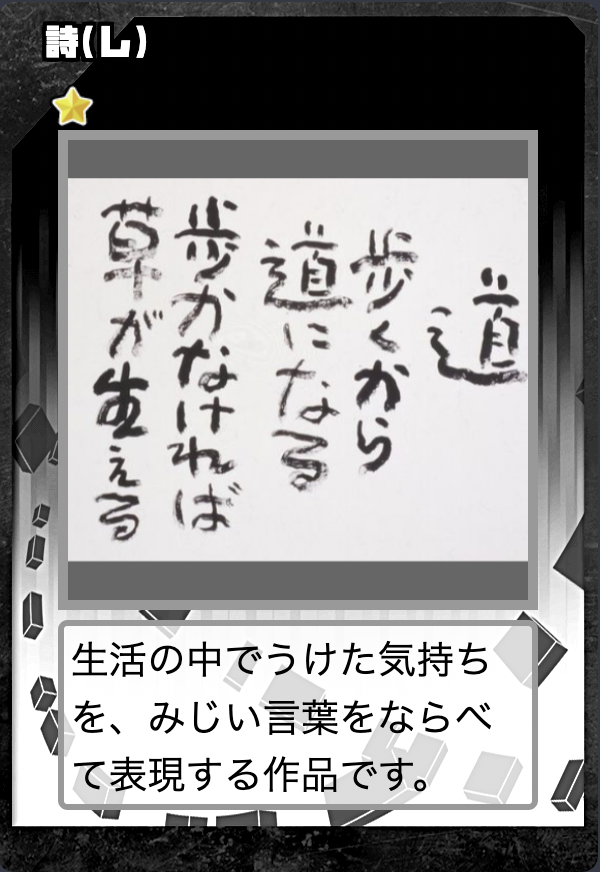 詩(し)
道
歩くから
道になる
歩かなければ
草が生える
生活の中でうけた気持ち
を、みじい言葉をならべ
て表現する作品です。